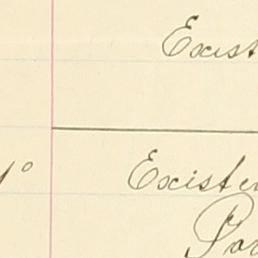 Exist
1º Existen
Par